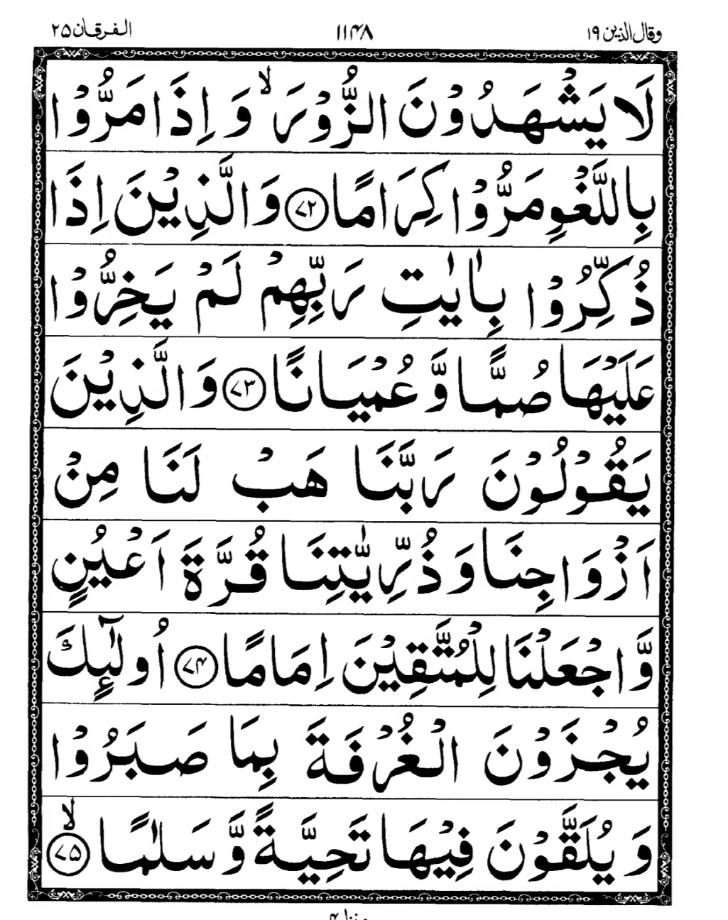 وقال الذين ١٩ ١١۴٨ الفرقان ٢٥
لَا يَشْهَدُوْنَ الزُّوْرَ ۙ وَ اِذَا مَرُّوْا
بِاللَّغْوِ مَرُّوْا كِرَامًا ﴿۷۲﴾ وَالَّذِيْنَ اِذَا
ذُكِّرُوْا بِاٰيٰتِ رَبِّهِمْ لَمْ يَخِرُّوْا
عَلَيْهَا صُمًّا وَّ عُمْيَانًا ﴿۷۳﴾ وَالَّذِيْنَ
يَقُوْلُوْنَ رَبَّنَا هَبْ لَنَا مِنْ
اَزْوَاجِنَا وَ ذُرِّيّٰتِنَا قُرَّةَ اَعْيُنٍ
وَّ اجْعَلْنَا لِلْمُتَّقِيْنَ اِمَامًا ﴿۷۴﴾ اُولٰٓئِكَ
يُجْزَوْنَ الْغُرْفَةَ بِمَا صَبَرُوْا
وَ يُلَقَّوْنَ فِيْهَا تَحِيَّةً وَّ سَلٰمًا ﴿۷۵﴾ ۙ